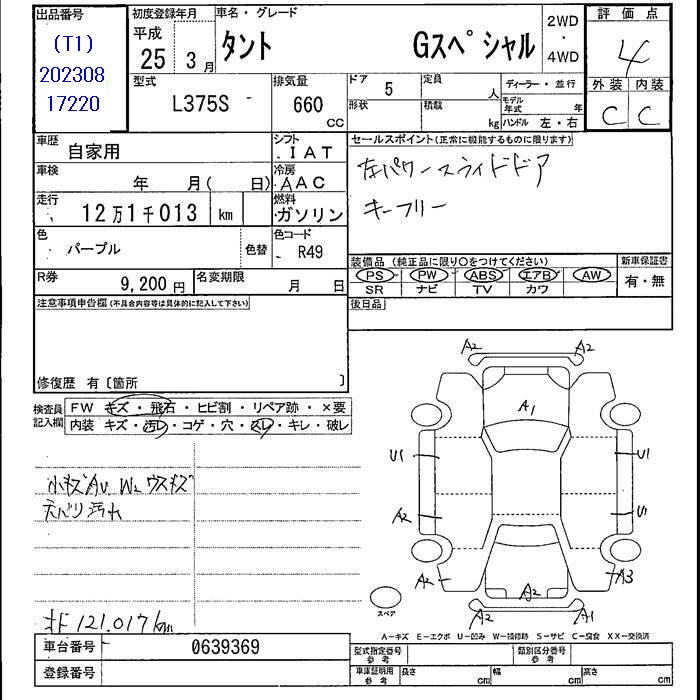 出品番号
(T1)
202308
17220
初度登録年月
平成
25 3月
車名・グレード
タント Gスペシャル
2WD
・
4WD
評価点
4
外装 内装
C C
型式
L375S
排気量
660
CC
ドア 5
形状
定員 人
積載 kg
ディーラー・並行
モデル年式 年
ハンドル 左・右
車歴
自家用
シフト
IAT
車検
年 月( 日)
冷房
AAC
走行
12万1千013 km
燃料
ガソリン
色
パープル
色替
色コード
R49
R券
9,200円
名変期限
月 日
セールスポイント(正常に機能するものに限ります)
左パワースライドドア
キーフリー
装備品(純正品に限り○をつけてください)
PS PW ABS エアB AW
SR ナビ TV カワ
新車保証書
有・無
後日品
注意事項申告欄(不具合内容等は具体的に記入して下さい)
修復歴 有〔箇所 〕
検査員
記入欄
FW キズ・飛石・ヒビ割・リペア跡・×要
内装 キズ・汚レ・コゲ・穴・スレ・キレ・破レ
小キズAU W2 ウスキズ
下 121.017km
A2 A2
A1
U1
A2
U1
A2 A2 A3
A2 A1
スペア
A−キズ E−エクボ U−凹み W−補修跡 S−サビ C−腐食 XX−交換済
車台番号 0639369
登録番号
型式指定番号
参考
類別区分番号
参考
車庫証明用
参考
長さ cm
幅 cm
高さ cm